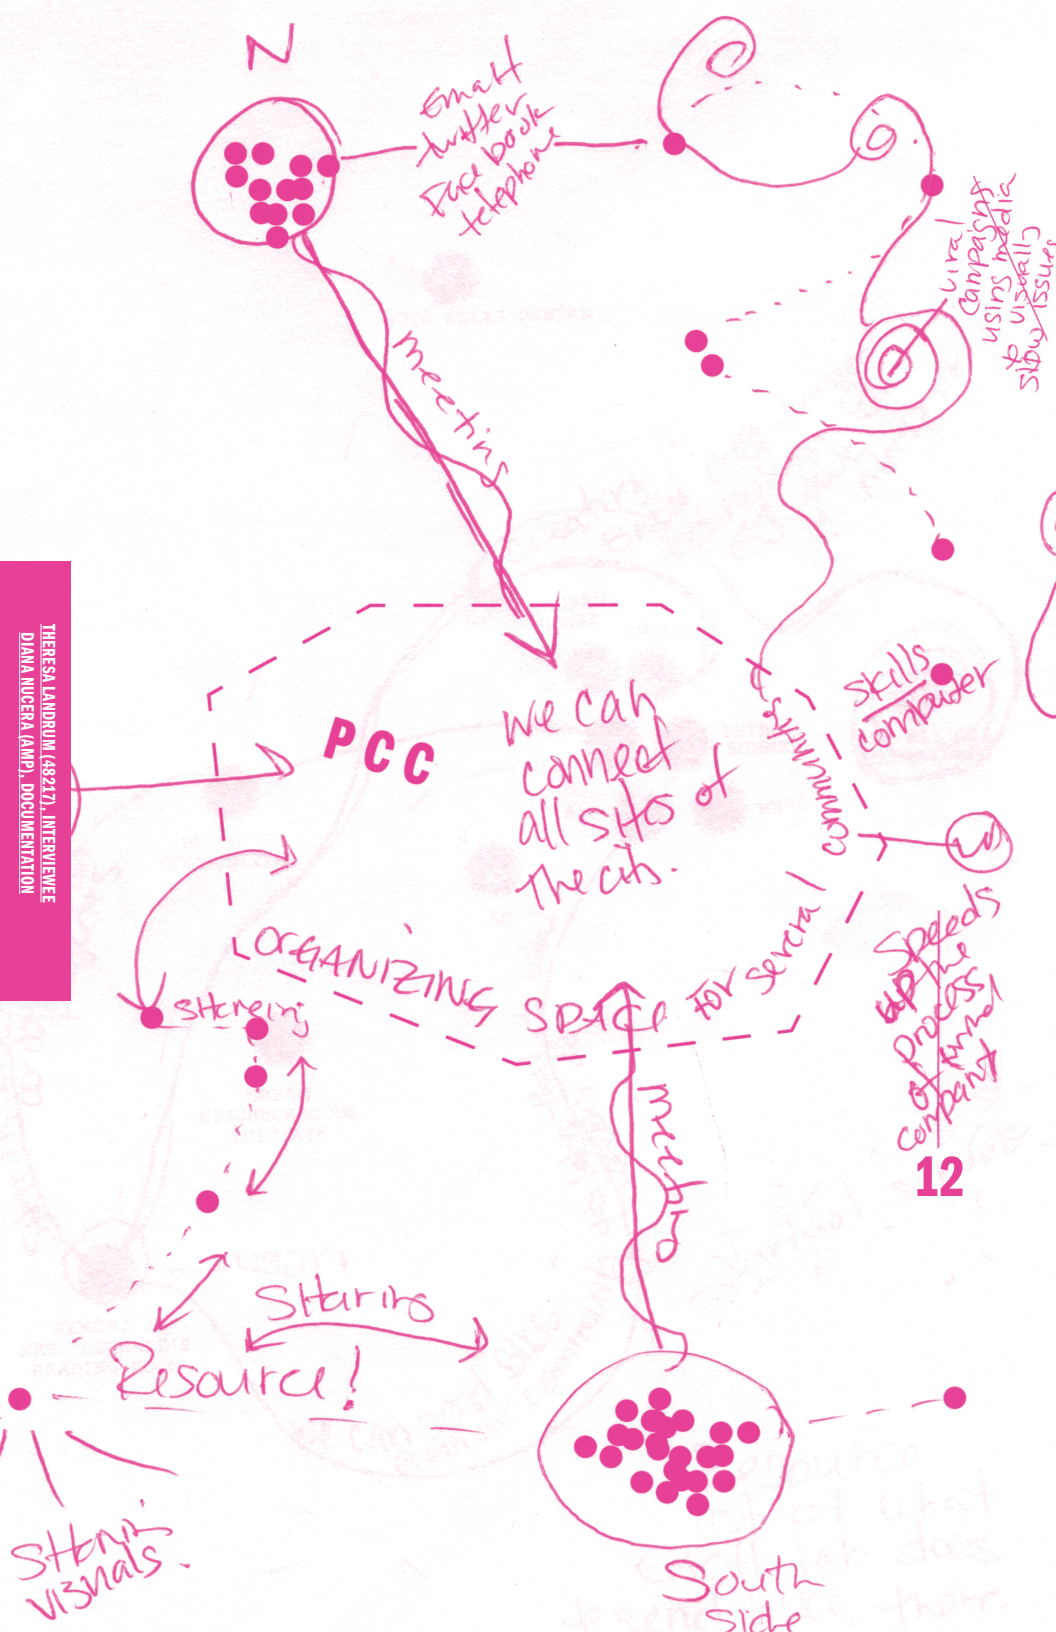 N
Email
twitter
Face book
telephone
viral
campaigns
using media
to visually
show issues
meeting
THERESA LANDRUM (48217), INTERVIEWEE
DIANA NUCERA (AMP), DOCUMENTATION
PCC
we can
connect
all sides of
the city.
Skills
computer
ORGANIZING SPACE for several communities
Speeds
up the
process
of
company
12
SHareing
meeting
SHaring
Resource!
South
Side
visuals.